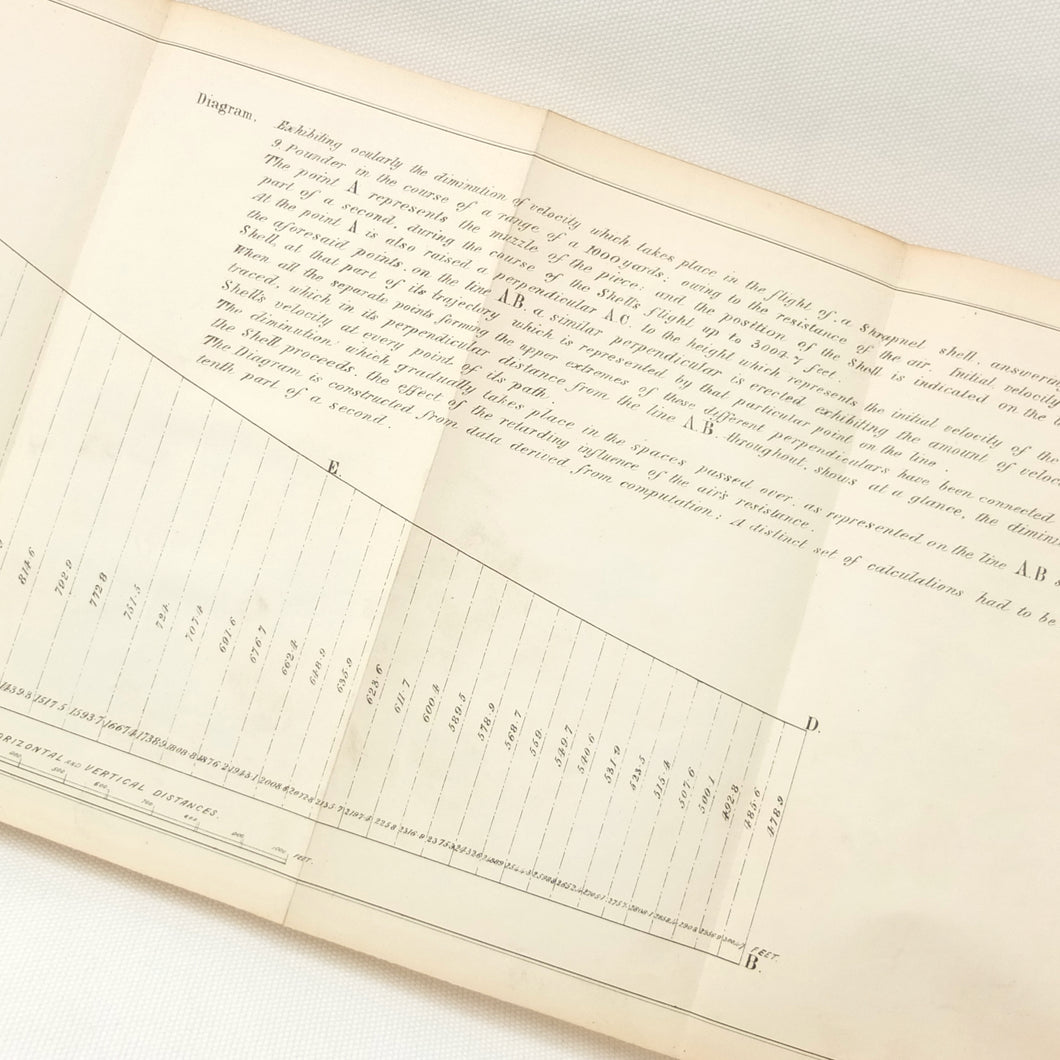 Diagram.
Exhibiting ocularly the diminution of velocity which takes place in the flight of a Shrapnel shell, answering
9 Pounder in the course of a range of a 1000 yards; owing to the resistance of the air. Initial velocity
The point A represents the muzzle of the piece; and the position of the Shell is indicated on the
part of a second, during the course of the Shell's flight up to 3004.7 feet.
At the point A is also raised a perpendicular A.C. to the height which represents the initial velocity of the
the aforesaid points, on the line A.B. a similar perpendicular is erected, exhibiting the amount of veloc
Shell, at that part of its trajectory which is represented by that particular point on the line.
When all the separate points forming the upper extremes of these different perpendiculars have been connected
traced, which in its perpendicular distance from the line A.B. throughout, shows at a glance, the dimin
Shell's velocity at every point, of its path.
The diminution, which gradually takes place in the spaces passed over, as represented on the line A.B
the Shell proceeds, the effect of the retarding influence of the air's resistance.
The Diagram is constructed from data derived from computation; A distinct set of calculations had to be
tenth part of a second.
E.
D.
814.6
792.9
772.8
751.5
724.
707.4
691.6
676.7
662.4
648.9
635.9
623.6
611.7
600.4
589.5
578.9
568.7
559.
549.7
540.6
531.9
523.5
515.4
507.6
500.1
492.8
485.6
478.9
1439.8 1517.5 1593.7 1667.4 1738.9 1808.8 1876.2 1943.1 2008.6 2072.8 2135.7 2197.4 2258 2316.9 2375.3
2757. 2808.1 2858.4 2908 3004.7 FEET.
B.
HORIZONTAL AND VERTICAL DISTANCES.
400 500 600 700 800 900 1000 FEET.